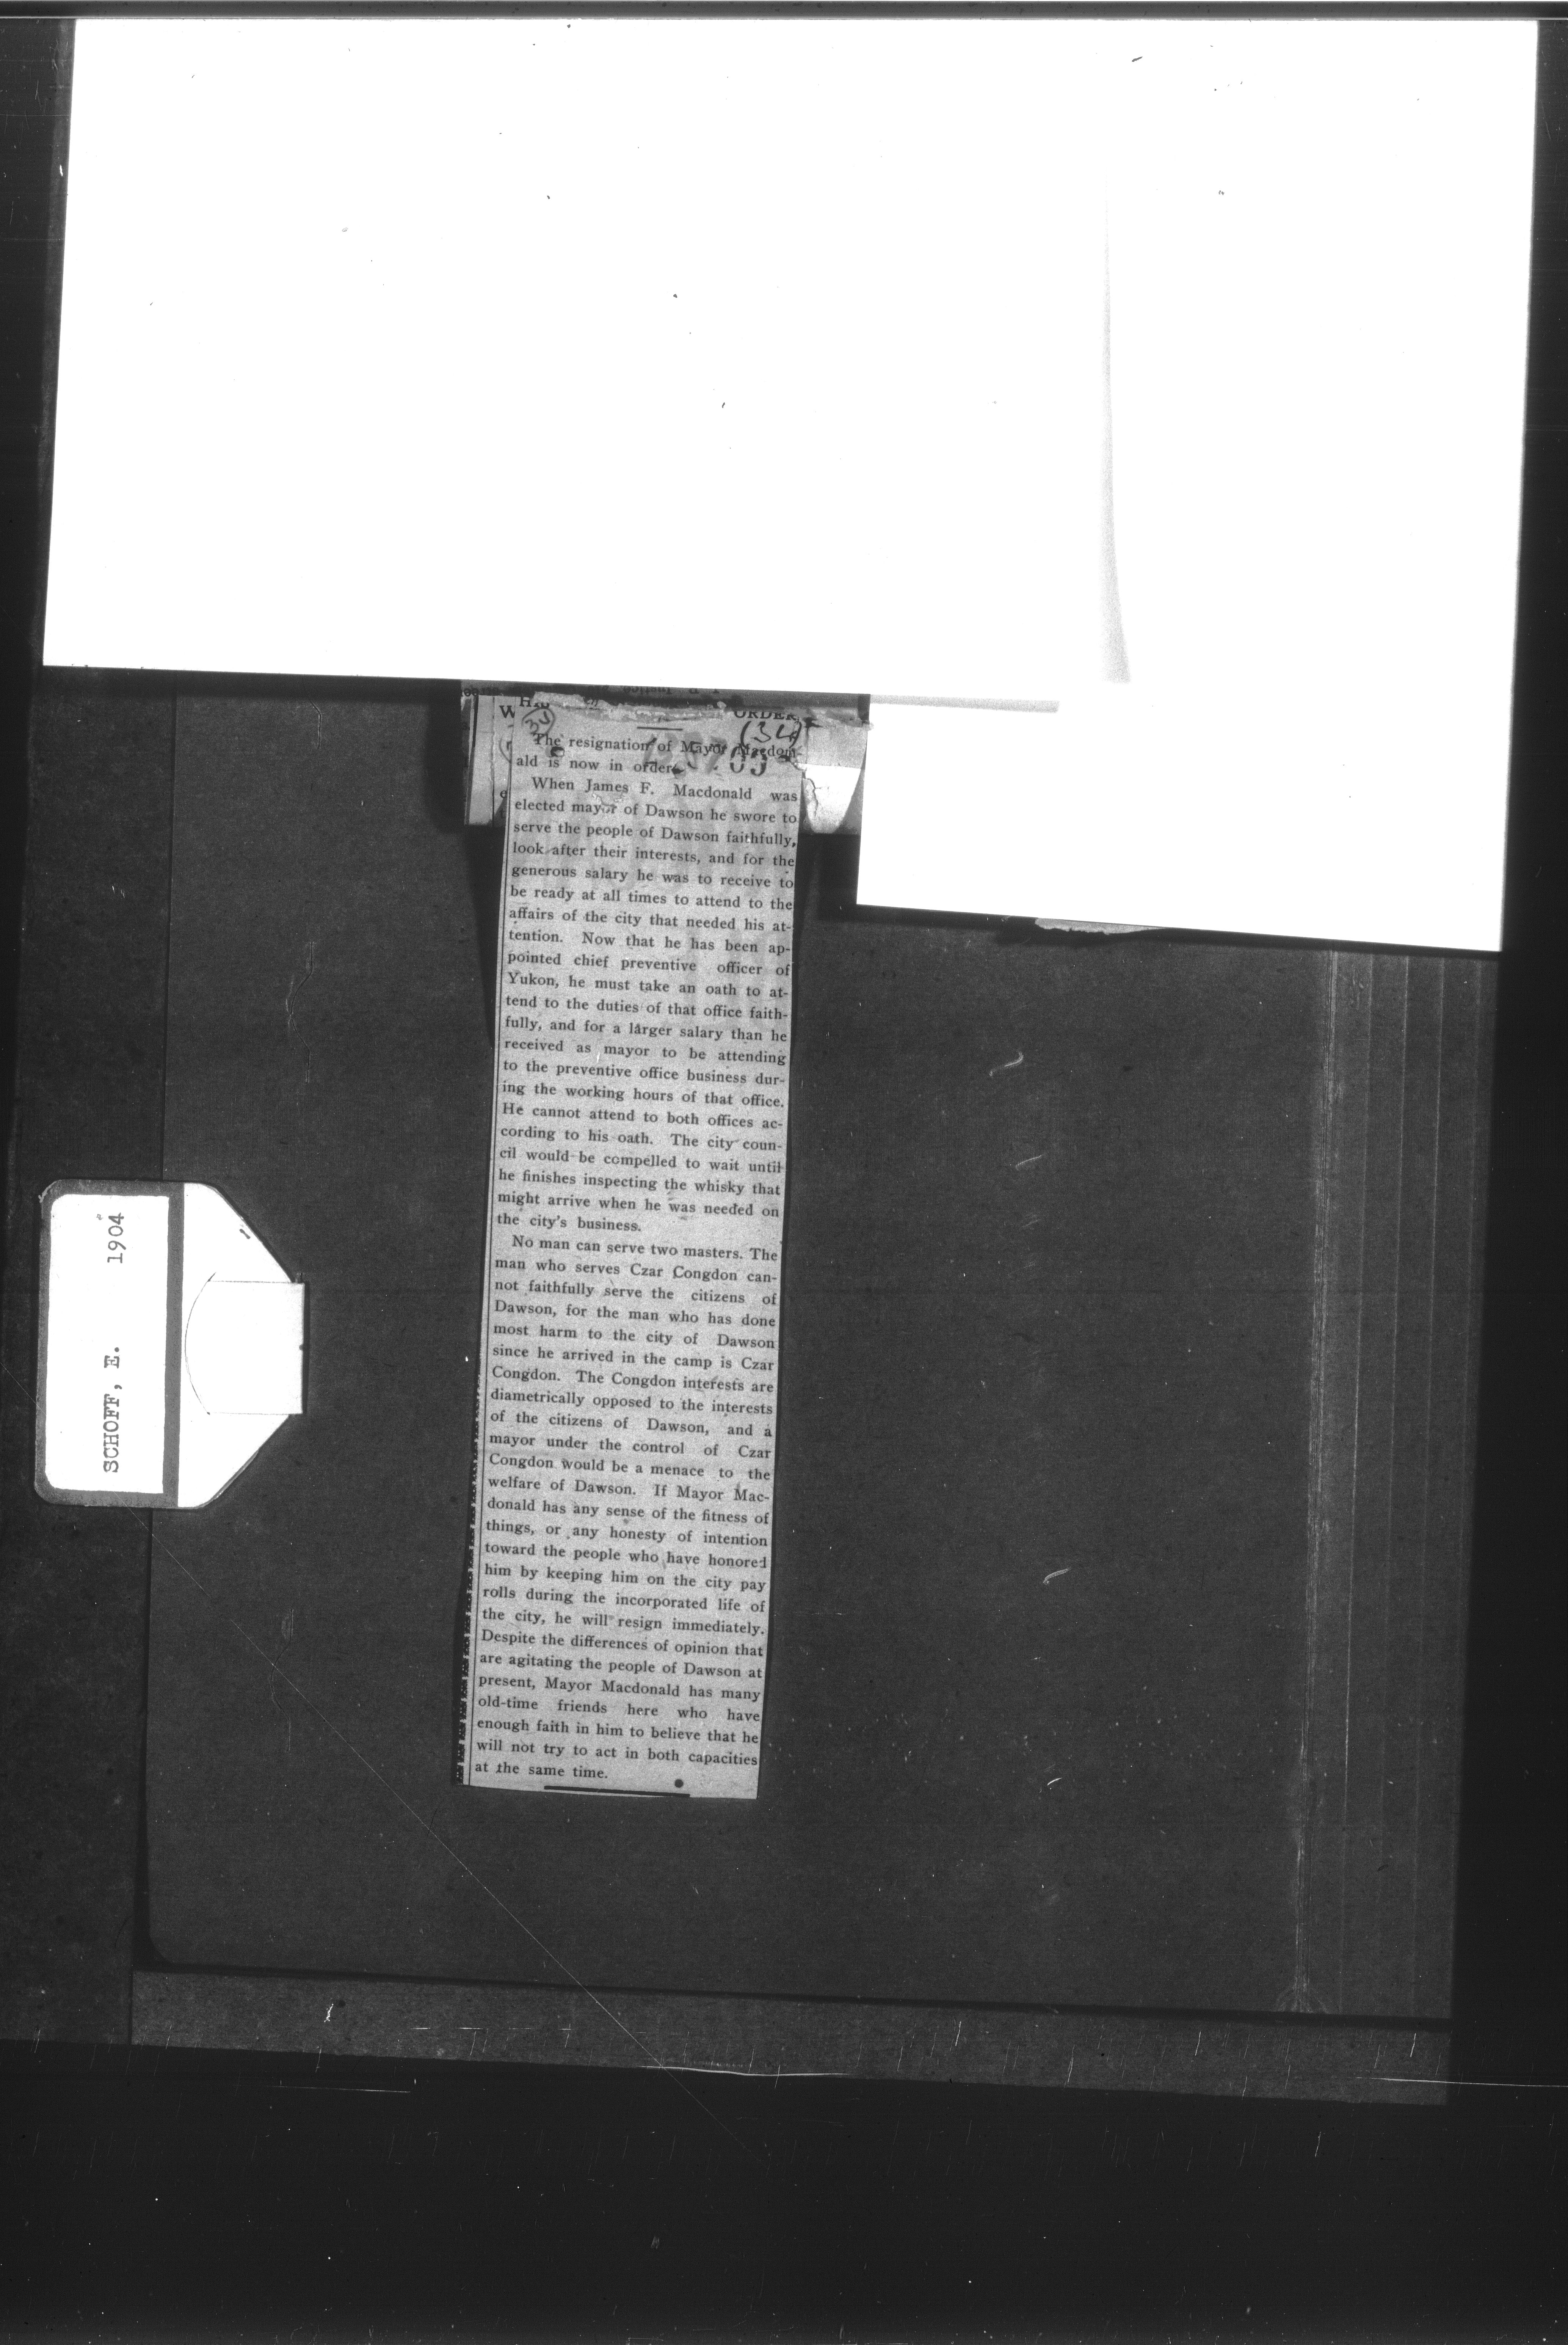 ORDER
(34)
34
The resignation of Mayor Macdon-
ald is now in order.
When James F. Macdonald was
elected mayor of Dawson he swore to
serve the people of Dawson faithfully,
look after their interests, and for the
generous salary he was to receive to
be ready at all times to attend to the
affairs of the city that needed his at-
tention. Now that he has been ap-
pointed chief preventive officer of
Yukon, he must take an oath to at-
tend to the duties of that office faith-
fully, and for a larger salary than he
received as mayor to be attending
to the preventive office business dur-
ing the working hours of that office.
He cannot attend to both offices ac-
cording to his oath. The city coun-
cil would be compelled to wait until
he finishes inspecting the whisky that
might arrive when he was needed on
the city's business.
No man can serve two masters. The
man who serves Czar Congdon can-
not faithfully serve the citizens of
Dawson, for the man who has done
most harm to the city of Dawson
since he arrived in the camp is Czar
Congdon. The Congdon interests are
diametrically opposed to the interests
of the citizens of Dawson, and a
mayor under the control of Czar
Congdon would be a menace to the
welfare of Dawson. If Mayor Mac-
donald has any sense of the fitness of
things, or any honesty of intention
toward the people who have honored
him by keeping him on the city pay
rolls during the incorporated life of
the city, he will resign immediately.
Despite the differences of opinion that
are agitating the people of Dawson at
present, Mayor Macdonald has many
old-time friends here who have
enough faith in him to believe that he
will not try to act in both capacities
at the same time.
SCHOFF, E. 1904